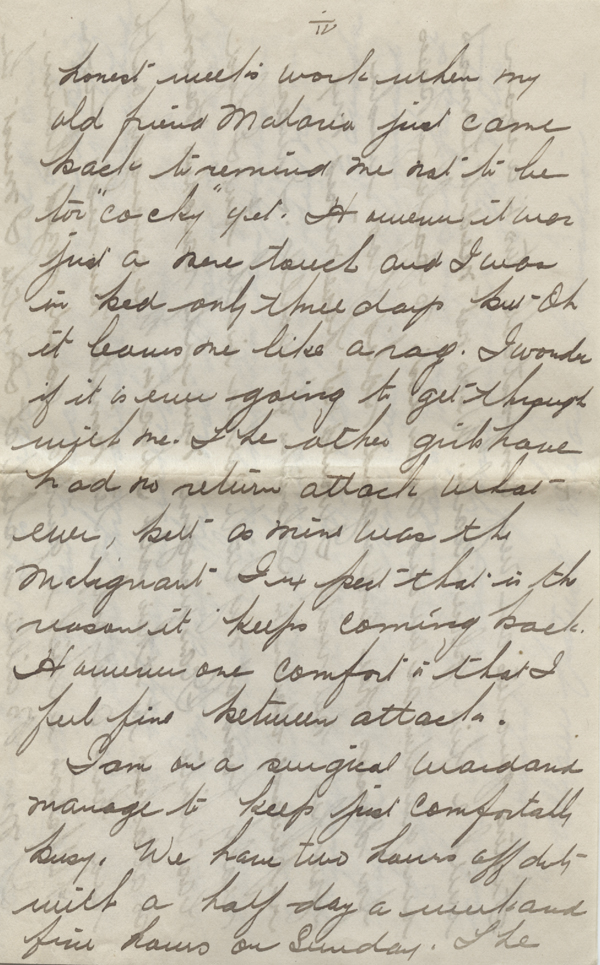 IV
honest week's work when my
old friend Malaria just came
back to remind me not to be
too "cocky" yet. However it was
just a mere touch and I was
in bed only three days but Oh
it leaves me like a rag. I wonder
if it is ever going to get through
with me. The other girls have
had no return attack what
ever, but as mine was the
Malignant I expect that is the
reason it keeps coming back.
However one comfort is that I
feel fine between attacks.
I am on a surgical ward and
manage to keep just comfortably
busy. We have two hours off duty
with a half day a week and
five hours on Sunday. The